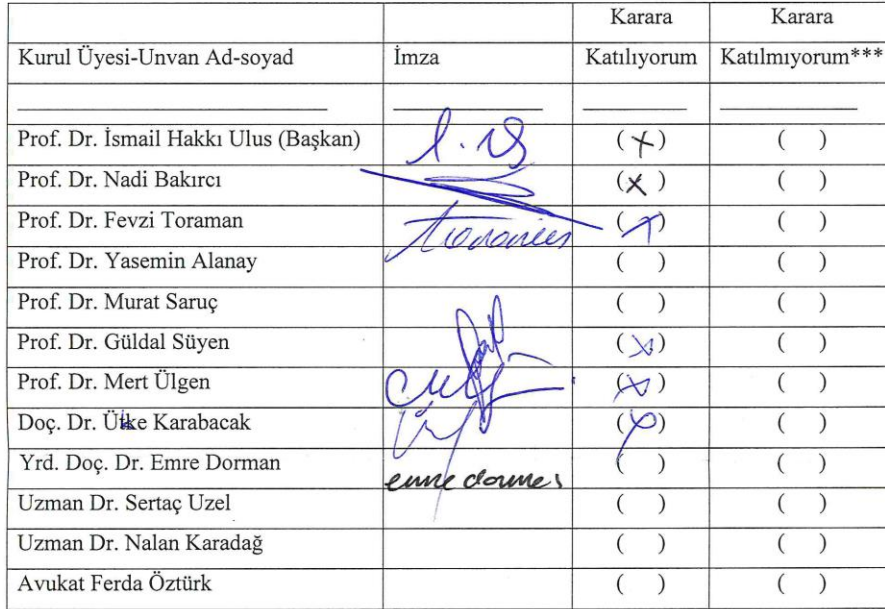 Karara Karara
Kurul Üyesi-Unvan Ad-soyad İmza Katılıyorum Katılmıyorum***
Prof. Dr. İsmail Hakkı Ulus (Başkan) (x) ( )
Prof. Dr. Nadi Bakırcı (x) ( )
Prof. Dr. Fevzi Toraman (x) ( )
Prof. Dr. Yasemin Alanay ( ) ( )
Prof. Dr. Murat Saruç ( ) ( )
Prof. Dr. Güldal Süyen (x) ( )
Prof. Dr. Mert Ülgen (x) ( )
Doç. Dr. Ülke Karabacak (x) ( )
Yrd. Doç. Dr. Emre Dorman ( ) ( )
Uzman Dr. Sertaç Uzel ( ) ( )
Uzman Dr. Nalan Karadağ ( ) ( )
Avukat Ferda Öztürk ( ) ( )